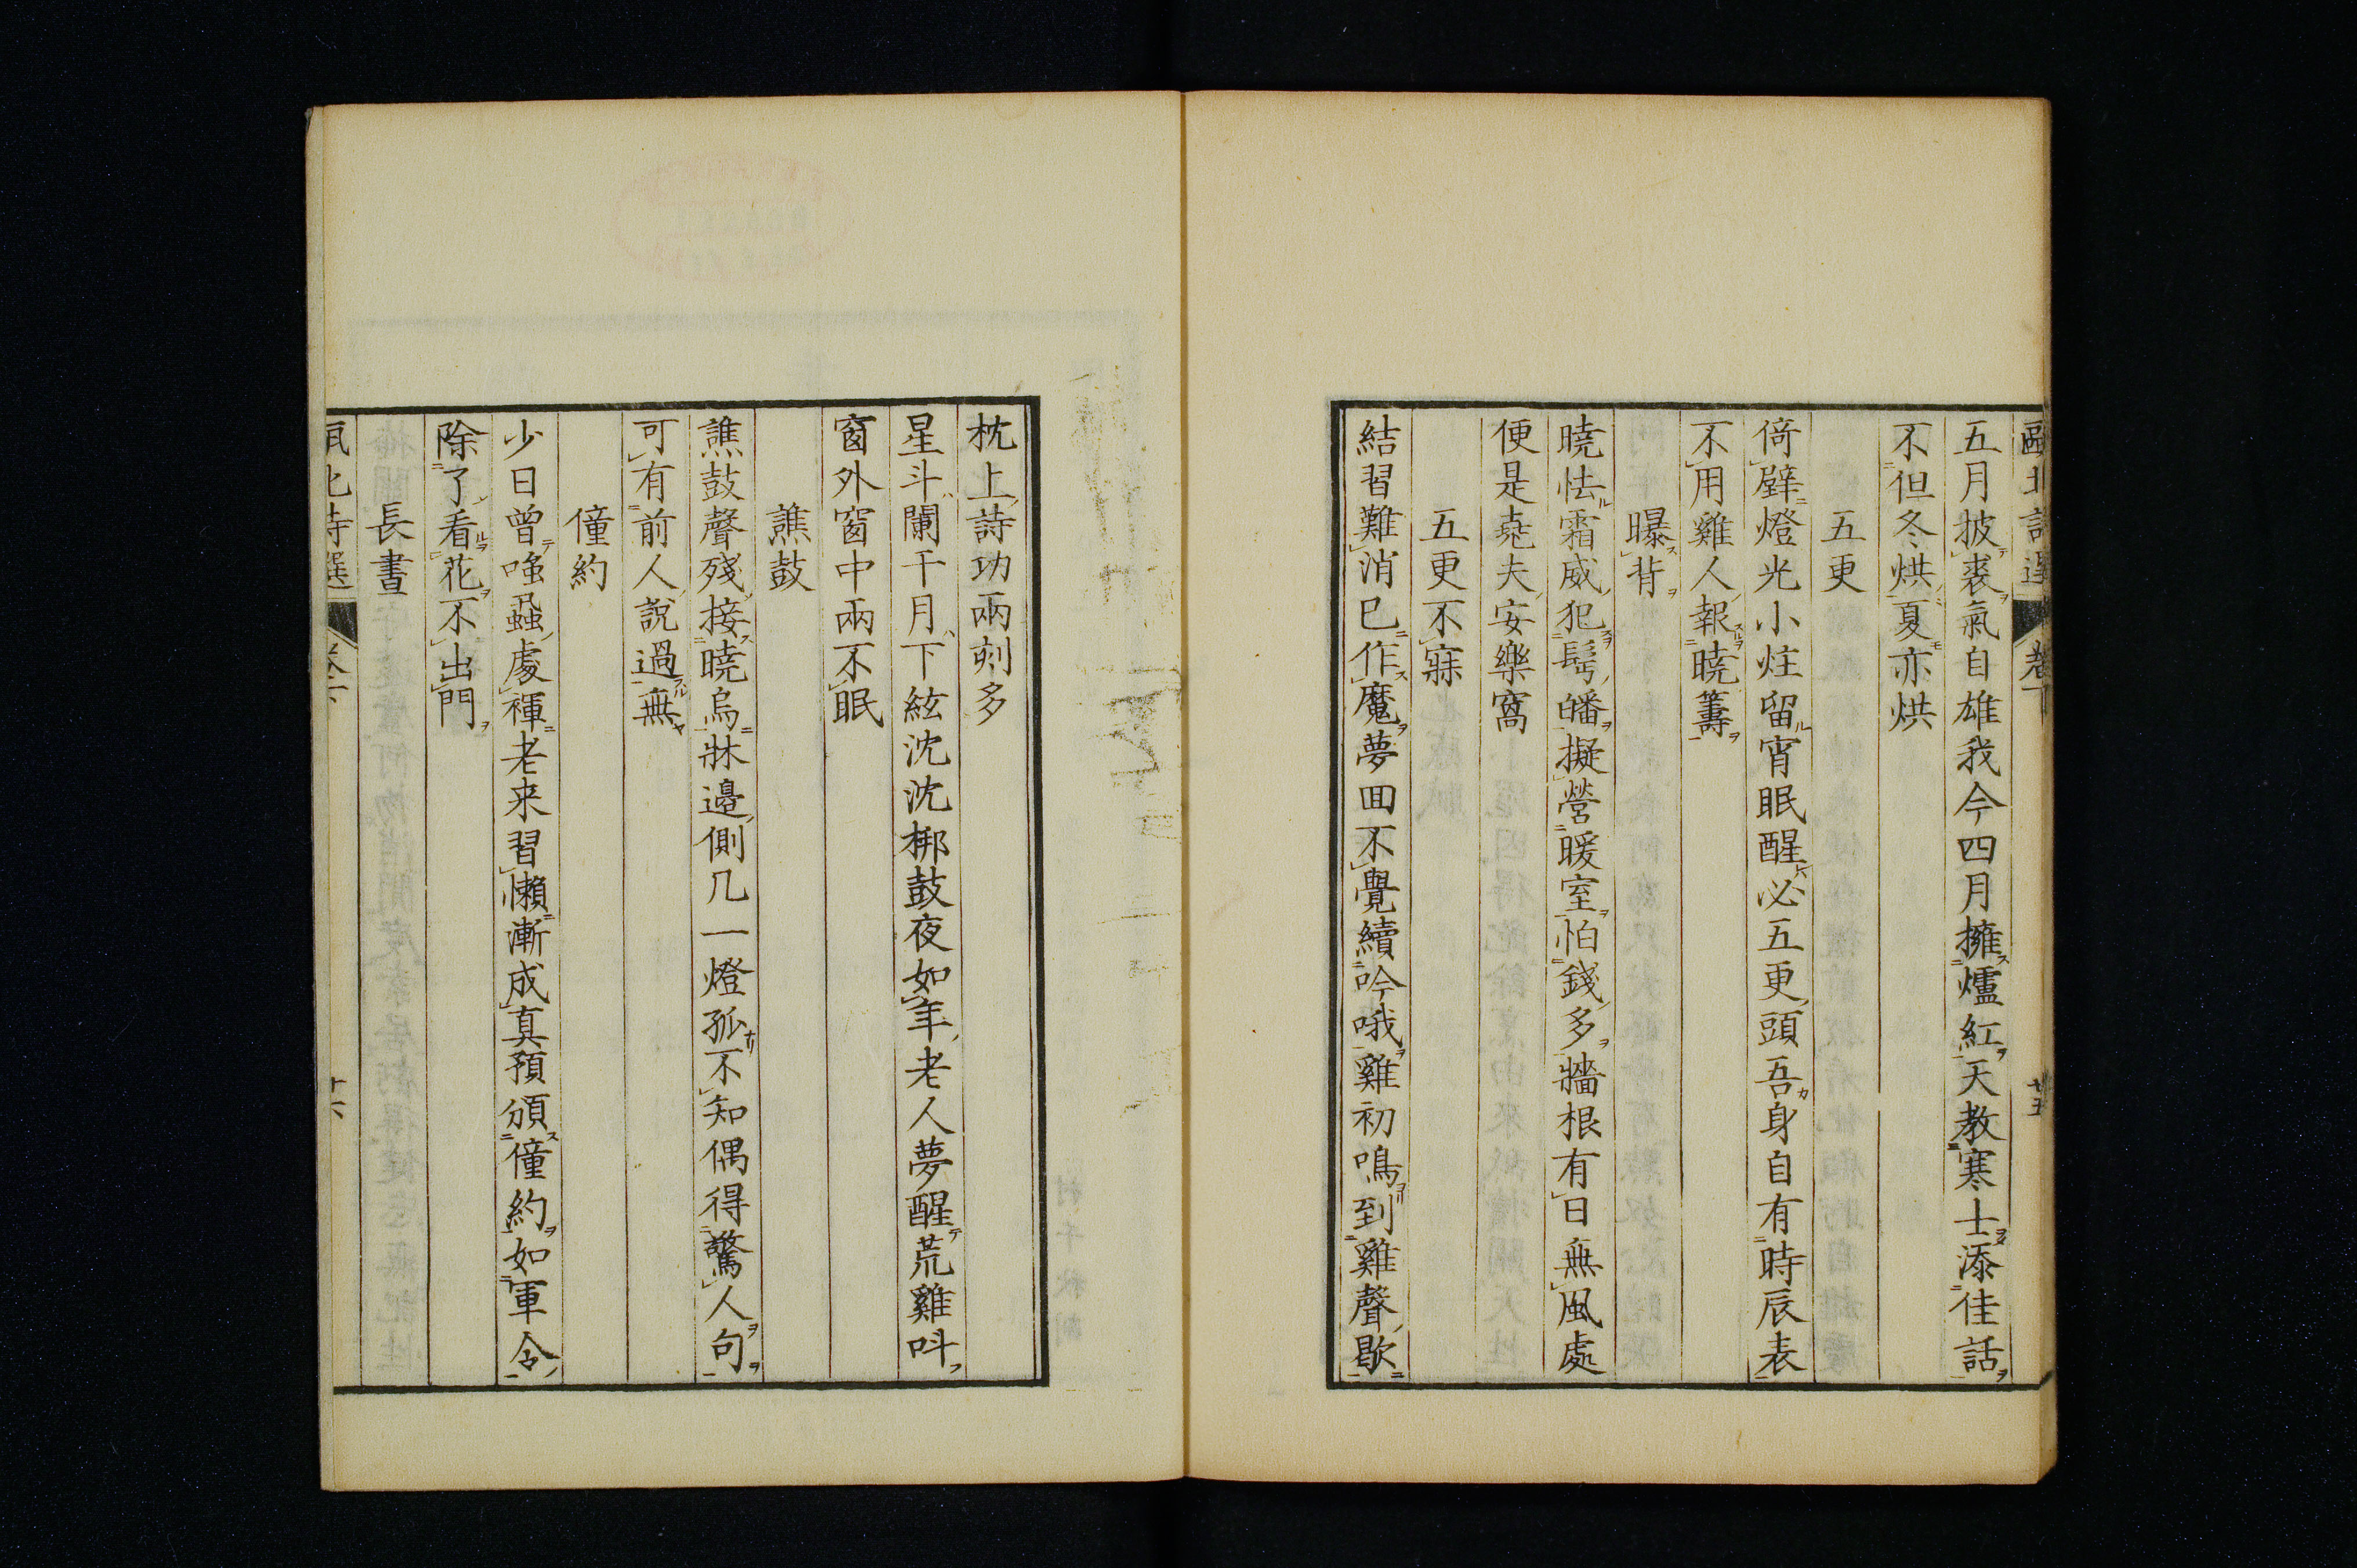 甌北詩選 卷下 廿五
五月披裘氣自雄我今四月擁爐紅天教寒士添佳話
不但冬烘夏亦烘
五更
倚壁燈光小炷留宵眠醒必五更頭吾身自有時辰表
不用雞人報曉籌
曝背
曉怯霜威犯髩皤擬營暖室怕錢多牆根有日無風處
便是堯夫安樂窩
五更不寐
結習難消已作魔夢回不覺續吟哦雞初鳴到雞聲歇
枕上詩功兩刻多
星斗闌干月下絃沈沈梆鼓夜如年老人夢醒荒雞叫
窗外窗中兩不眠
譙鼓
譙鼓聲殘接曉烏牀邊側几一燈孤不知偶得驚人句
可有前人說過無
僮約
少日曾嗤蝨處褌老来習懶漸成真預頒僮約如軍令
除了看花不出門
長晝
甌北詩選 卷下 廿六